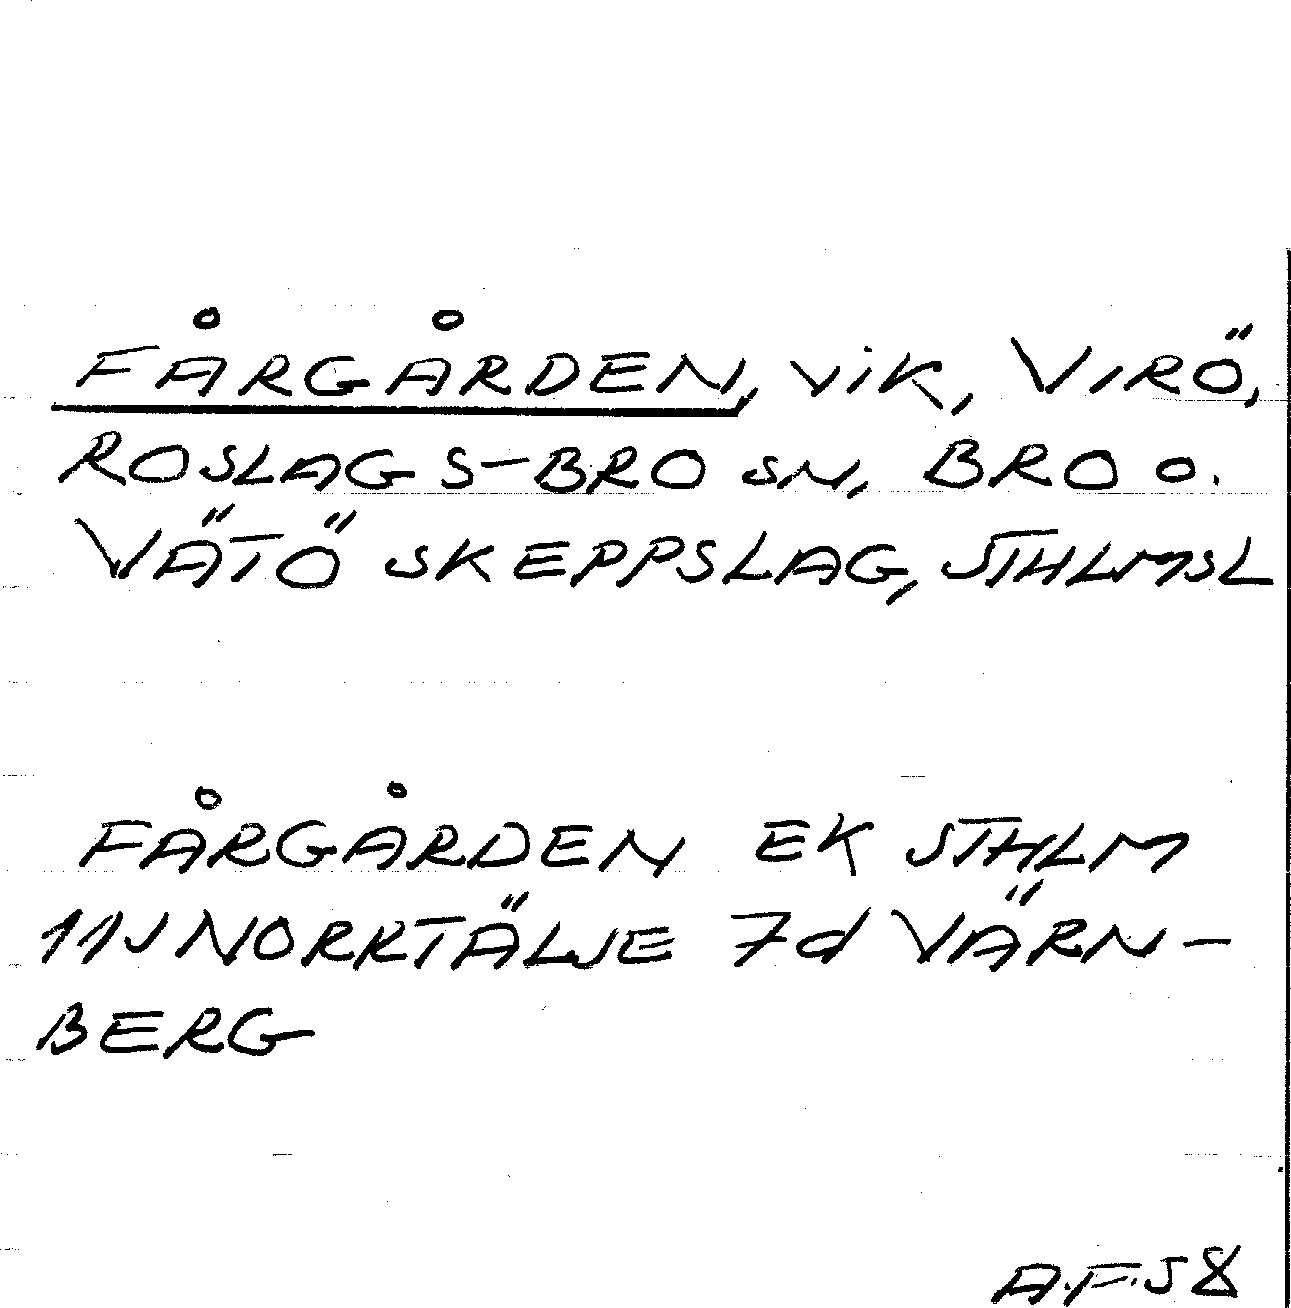 FÅRGÅRDEN, VIK, VIRÖ,
ROSLAGS-BRO SN, BRO O.
VÄTÖ SKEPPSLAG, STHLMSL
FÅRGÅRDEN EK STHLM
11J NORRTÄLJE 7d VÄRN-
BERG
A.F. 58